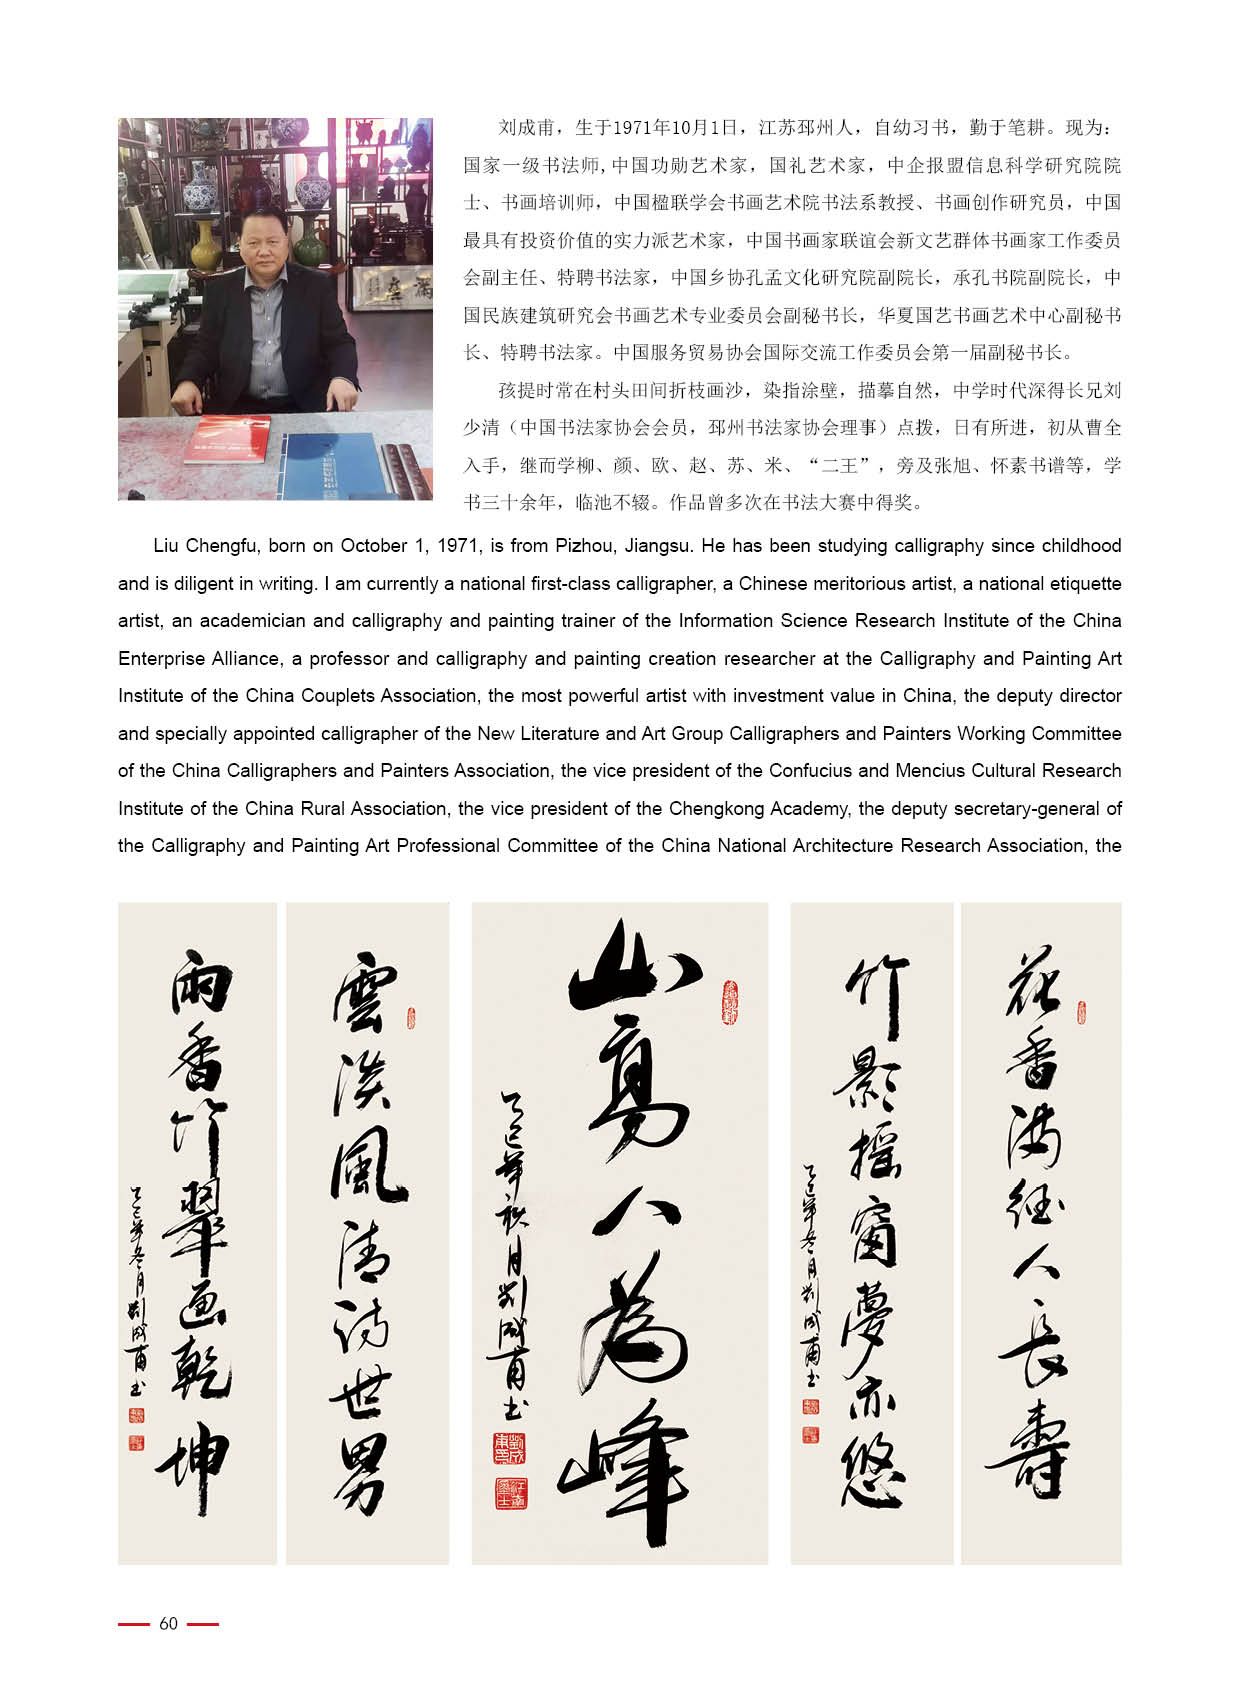 刘成甫，生于1971年10月1日，江苏邳州人，自幼习书，勤于笔耕。现为：
国家一级书法师,中国功勋艺术家，国礼艺术家，中企报盟信息科学研究院院
士、书画培训师，中国楹联学会书画艺术院书法系教授、书画创作研究员，中国
最具有投资价值的实力派艺术家，中国书画家联谊会新文艺群体书画家工作委员
会副主任、特聘书法家，中国乡协孔孟文化研究院副院长，承孔书院副院长，中
国民族建筑研究会书画艺术专业委员会副秘书长，华夏国艺书画艺术中心副秘书
长、特聘书法家。中国服务贸易协会国际交流工作委员会第一届副秘书长。
孩提时常在村头田间折枝画沙，染指涂壁，描摹自然，中学时代深得长兄刘
少清（中国书法家协会会员，邳州书法家协会理事）点拨，日有所进，初从曹全
入手，继而学柳、颜、欧、赵、苏、米、“二王”，旁及张旭、怀素书谱等，学
书三十余年，临池不辍。作品曾多次在书法大赛中得奖。
Liu Chengfu, born on October 1, 1971, is from Pizhou, Jiangsu. He has been studying calligraphy since childhood
and is diligent in writing. I am currently a national first-class calligrapher, a Chinese meritorious artist, a national etiquette
artist, an academician and calligraphy and painting trainer of the Information Science Research Institute of the China
Enterprise Alliance, a professor and calligraphy and painting creation researcher at the Calligraphy and Painting Art
Institute of the China Couplets Association, the most powerful artist with investment value in China, the deputy director
and specially appointed calligrapher of the New Literature and Art Group Calligraphers and Painters Working Committee
of the China Calligraphers and Painters Association, the vice president of the Confucius and Mencius Cultural Research
Institute of the China Rural Association, the vice president of the Chengkong Academy, the deputy secretary-general of
the Calligraphy and Painting Art Professional Committee of the China National Architecture Research Association, the
花香满径人长壽
竹影摇窗夢亦悠
乙巳年冬月劉成甫书
山高人為峰
乙巳年秋月劉成甫书
雲淡風清诗世男
雨香竹翠画乾坤
乙巳年冬月劉成甫书
60